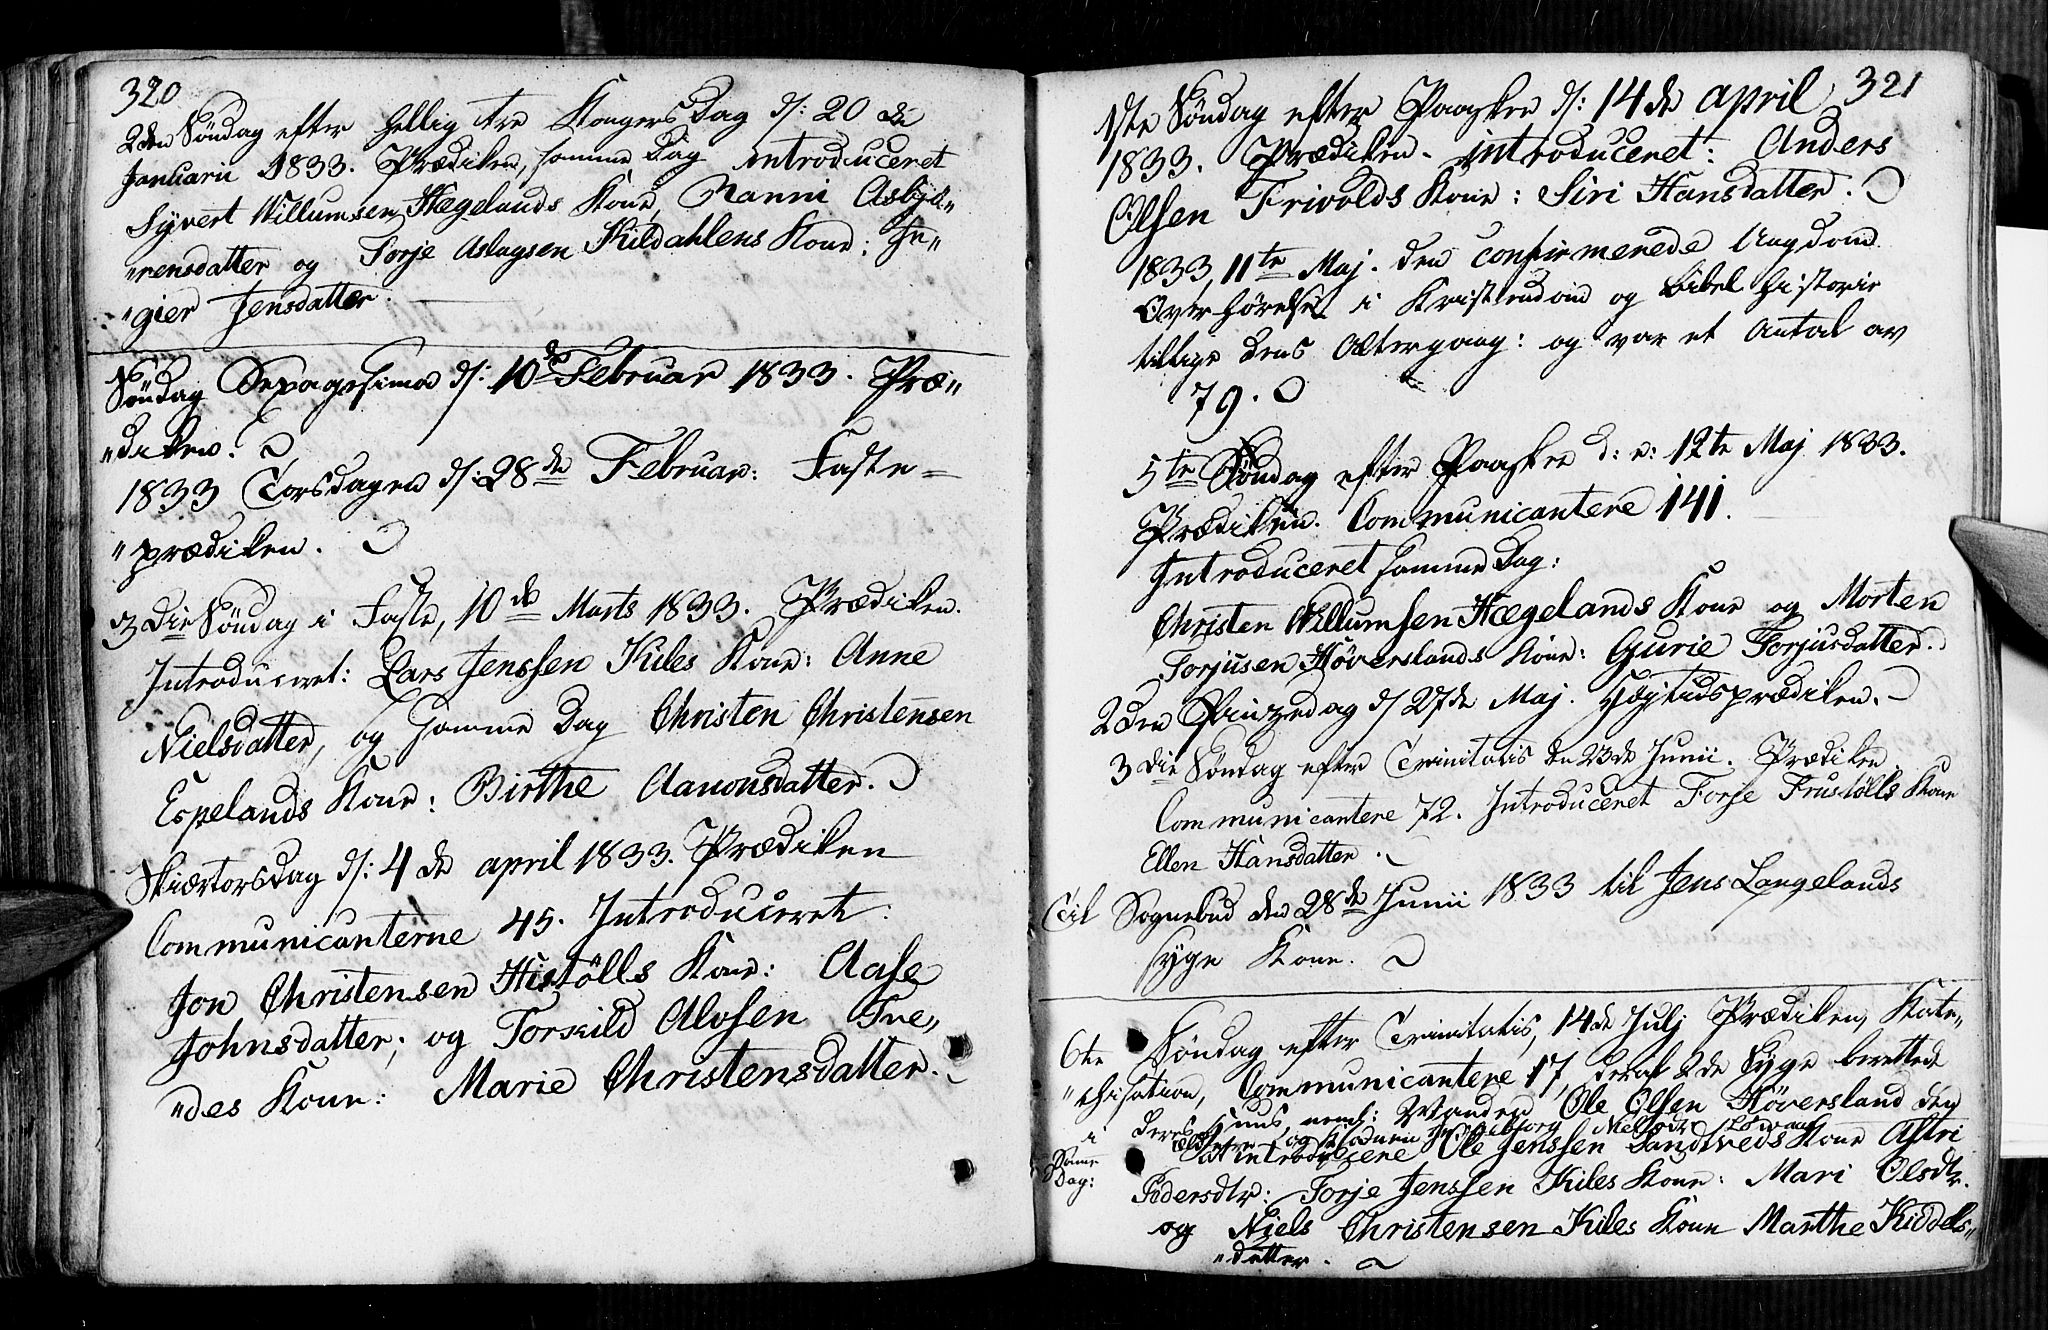 320
2den Søndag efter hellig tre Konger Dag d: 20 de
Januarii 1833. Prædiken, samme Dag introduceret
Syvert Willumsen Hægelands Kone, Nanni Asbjö„
„rensdatter og Torje Aslagsen Kildahlens Kone: In„
„gier Jensdatter.
Søndag Sexagesima d: 10de Februar 1833. Præ„
„diken.
1833 Torsdagen d: 28de Februar: Faste=
„prædiken.
3die Søndag i Faste, 10de Marts 1833. Prædiken.
Introduceret: Lars Jenssen Kiles Kone: Anne
Nielsdatter, og samme Dag Christen Christensen
Espelands Kone: Birthe Aanonsdatter.
Skiærtorsdag d: 4de april 1833. Prædiken
Communicanterne 45. Introduceret:
Jon Christensen Histölls Kone: Aase
Johnsdatter; og Torkild Alvsen Tve„
„des Kone: Marie Christensdatter.
321
1ste Søndag efter Paaske d: 14de april
1833. Prædiken. introduceret: Anders
Olsen Trivolds Kone: Siri Hansdatter.
1833, 11te Maj. den confirmerede Ungdom
Overhørelse i Kristendom og Bibel historie
tillige dens Altergang: og var et Antal av
79.
5te Søndag efter Paaske d: e: 12te Maj 1833.
Prædiken. Communicantere 141.
Introduceret samme Dag:
Christen Willumsen Hægelands Kone og Morten
Torjusen Høverslands Kone: Gurie Torjusdatter.
2den Pinzedag d 27de Maj. Højtidsprædiken.
3die Søndag efter Trinitatis den 23de Junii. Prædiken
Communicantere 72. Introduceret Torje Frustölls Kone
Ellen Hansdatter.
Til Sognebud den 28de Junii 1833 til Jens Langelands
syge Kone.
6te Søndag efter Trinitatis, 14de Julj Prædiken, Kate„
„chisation, Communicantere 17, deraf 2de Syge berettede
i deres Huus, neml: Manden Ole Olsen Høversland den
ældere og Konen Ingebjorg Nielsdtr
Samme Dag: introducere Ole Jenssen Sandveds Kone Astri
Pedersdtr: Torje Jenssen Kiles Kone: Mari Olsdtr.
og Niels Christensen Kiles Kone Marthe Kiddels„
„datter.